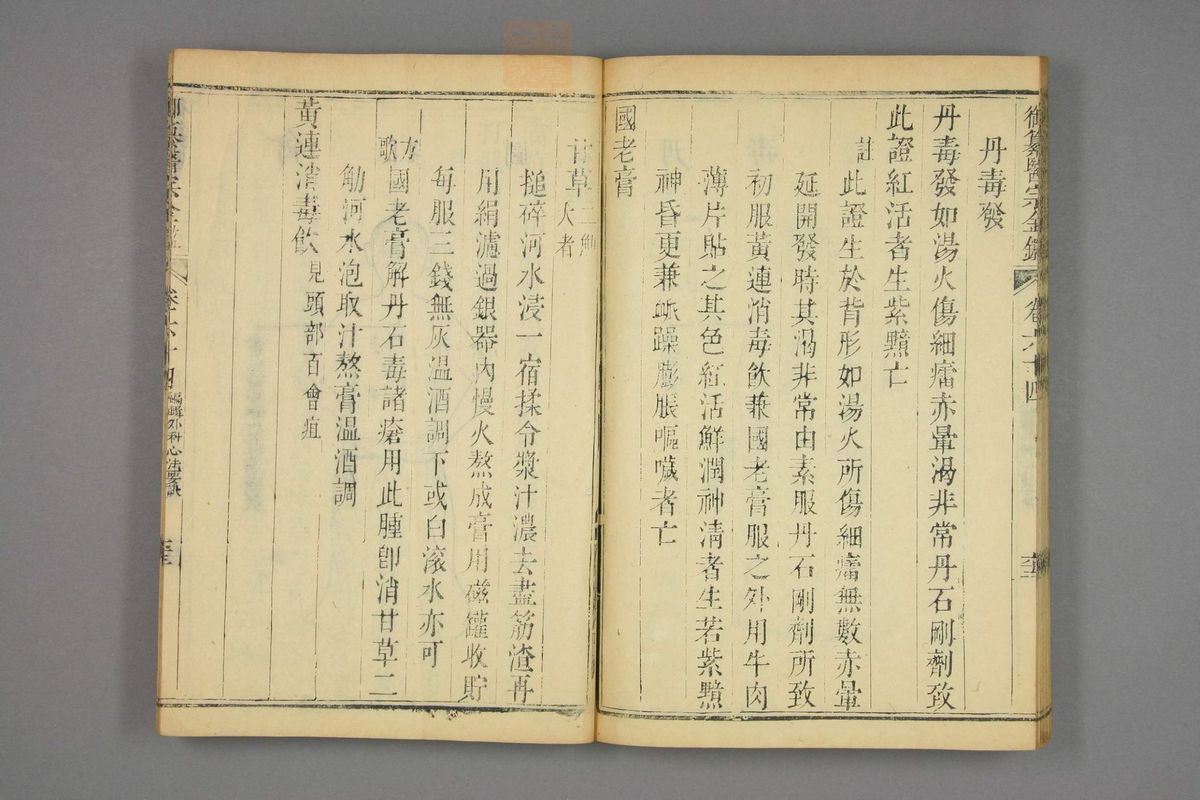 御纂醫宗金鑑 卷六十四
丹毒發
丹毒發如湯火傷細瘤赤暈渴非常丹石剛劑致
此證紅活者生紫黯亡
註此證生於背形如湯火所傷細瘤無數赤暈
延開發時其渴非常由素服丹石剛劑所致
初服黃連消毒飲兼國老膏服之外用牛肉
薄片貼之其色紅活鮮潤神清者生若紫黯
神昏更兼脈躁膨脹嘔噦者亡
國老膏
甘草二觔大者
搥碎河水浸一宿揉令漿汁濃去盡筋渣再
用絹濾過銀器內慢火熬成膏用磁罐收貯
每服三錢無灰溫酒調下或白滾水亦可
方歌國老膏解丹石毒諸瘡用此腫卽消甘草二
觔河水泡取汁熬膏溫酒調
黃連消毒飲見頭部百會疽
卷六十四 編輯外科心法要訣